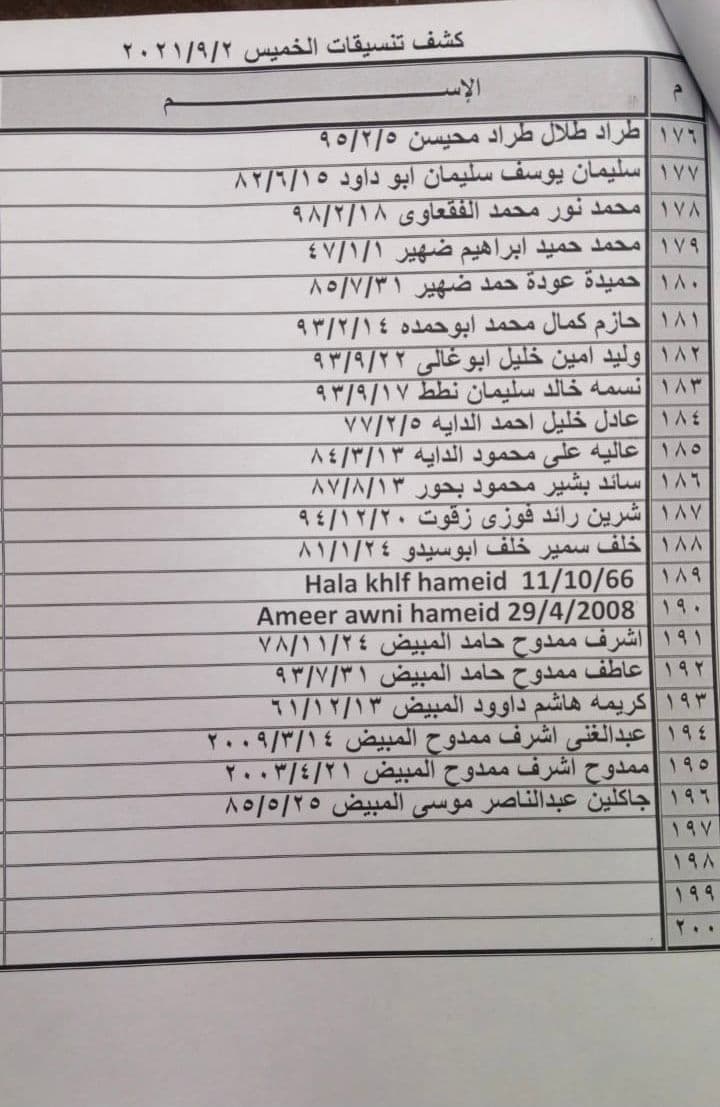 كشف تنسيقات الخميس ٢٠٢١/٩/٢
م الإســـــــــــــــــــــــــم
١٧٦ طراد طلال طراد محيسن ٩٥/٢/٥
١٧٧ سليمان يوسف سليمان ابو داود ٨٢/٦/١٥
١٧٨ محمد نور محمد الفقعاوى ٩٨/٢/١٨
١٧٩ محمد حميد ابراهيم ضهير ٤٧/١/١
١٨٠ حميدة عودة حمد ضهير ٨٥/٧/٣١
١٨١ حازم كمال محمد ابوحمده ٩٣/٢/١٤
١٨٢ وليد امين خليل ابوغالى ٩٣/٩/٢٢
١٨٣ نسمه خالد سليمان نطط ٩٣/٩/١٧
١٨٤ عادل خليل احمد الدايه ٧٧/٢/٥
١٨٥ عاليه على محمود الدايه ٨٤/٣/١٣
١٨٦ سائد بشير محمود بحور ٨٧/٨/١٣
١٨٧ شرين رائد فوزى زقوت ٩٤/١٢/٢٠
١٨٨ خلف سمير خلف ابوسيدو ٨١/١/٢٤
١٨٩ Hala khlf hameid 11/10/66
١٩٠ Ameer awni hameid 29/4/2008
١٩١ اشرف ممدوح حامد المبيض ٧٨/١١/٢٤
١٩٢ عاطف ممدوح حامد المبيض ٩٣/٧/٣١
١٩٣ كريمه هاشم داوود المبيض ٦١/١٢/١٣
١٩٤ عبدالغنى اشرف ممدوح المبيض ٢٠٠٩/٣/١٤
١٩٥ ممدوح اشرف ممدوح المبيض ٢٠٠٣/٤/٢١
١٩٦ جاكلين عبدالناصر موسى المبيض ٨٥/٥/٢٥
١٩٧
١٩٨
١٩٩
٢٠٠